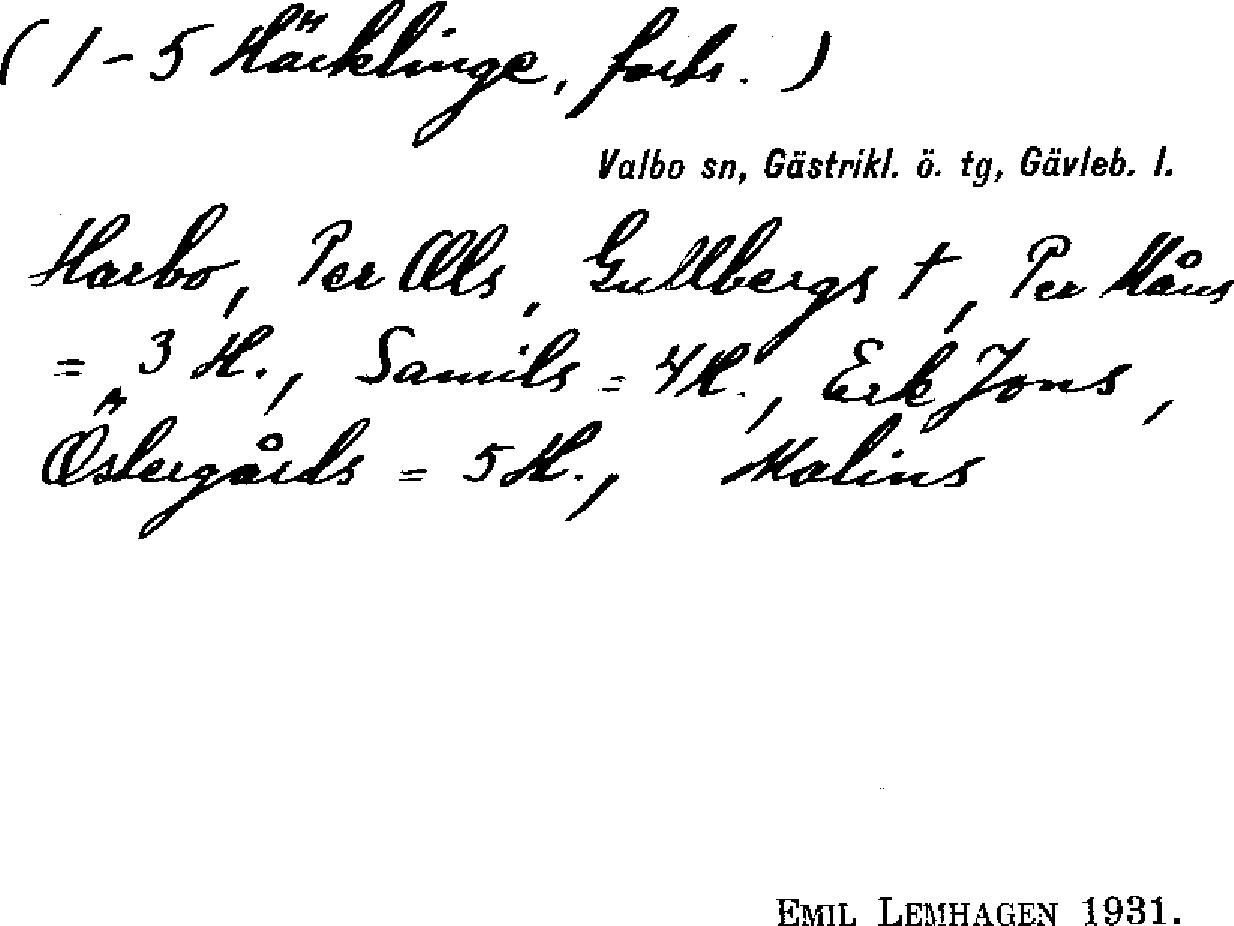 (1-5 Härklinge, forts.)
Valbo sn, Gästrikl. ö. tg, Gävleb. l.
Harbo, Per Ols, Gullbergs †, Per Måns
= 3 H., Samils = 4 H., Erk Jons,
Östergårds = 5 H., Malins
EMIL LEMHAGEN 1931.